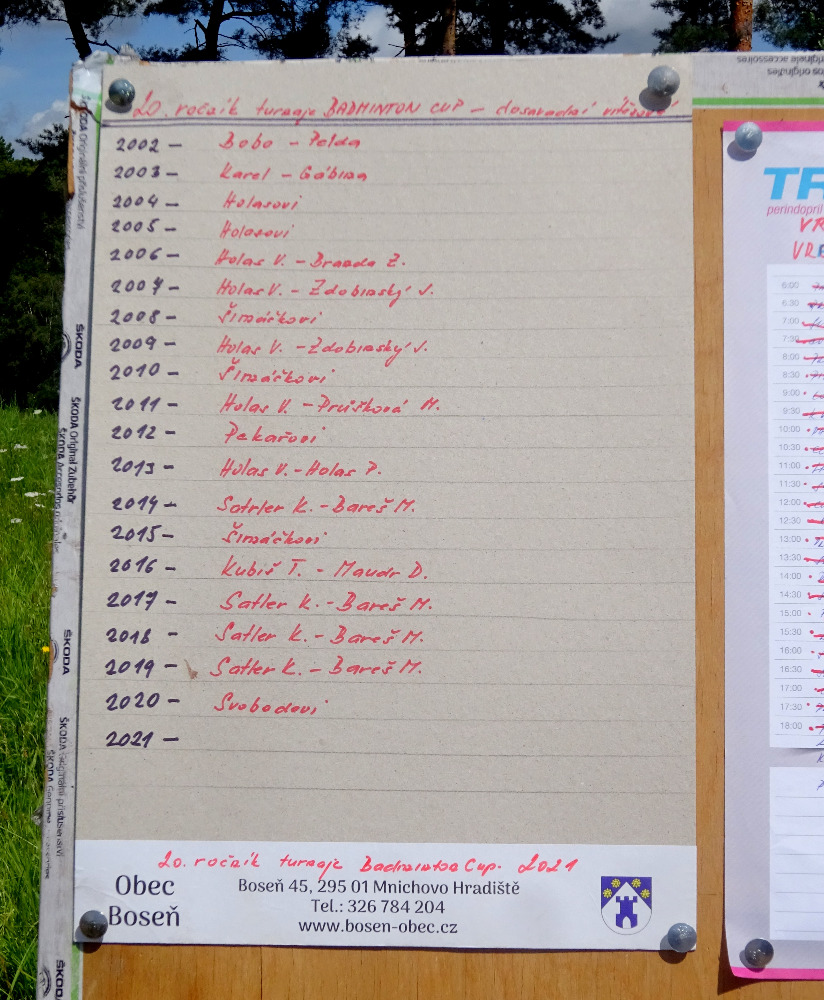 20. ročník turnaje BADMINTON CUP - dosavadní vítězové
2002 - Bobo - Pelda
2003 - Karel - Gábina
2004 - Holasovi
2005 - Holasovi
2006 - Holas V. - Branda Z.
2007 - Holas V. - Zdobinský J.
2008 - Šimáčkovi
2009 - Holas V. - Zdobinský J.
2010 - Šimáčkovi
2011 - Holas V. - Průšková M.
2012 - Pekařovi
2013 - Holas V. - Holas P.
2014 - Satrler K. - Bareš M.
2015 - Šimáčkovi
2016 - Kubiš T. - Maudr D.
2017 - Satler K. - Bareš M.
2018 - Satler K. - Bareš M.
2019 - Satler K. - Bareš M.
2020 - Svobodovi
2021 -
20. ročník turnaje Badminton Cup. 2021
Obec
Boseň
Boseň 45, 295 01 Mnichovo Hradiště
Tel.: 326 784 204
www.bosen-obec.cz
ŠKODA Originální příslušenství
ŠKODA
ŠKODA Original Zubehör
ŠKODA
ŠKODA Originální příslušenství
TR
perindopril
6:00
6:30
7:00
7:30
8:00
8:30
9:00
9:30
10:00
10:30
11:00
11:30
12:00
12:30
13:00
13:30
14:00
14:30
15:00
15:30
16:00
16:30
17:00
17:30
18:00